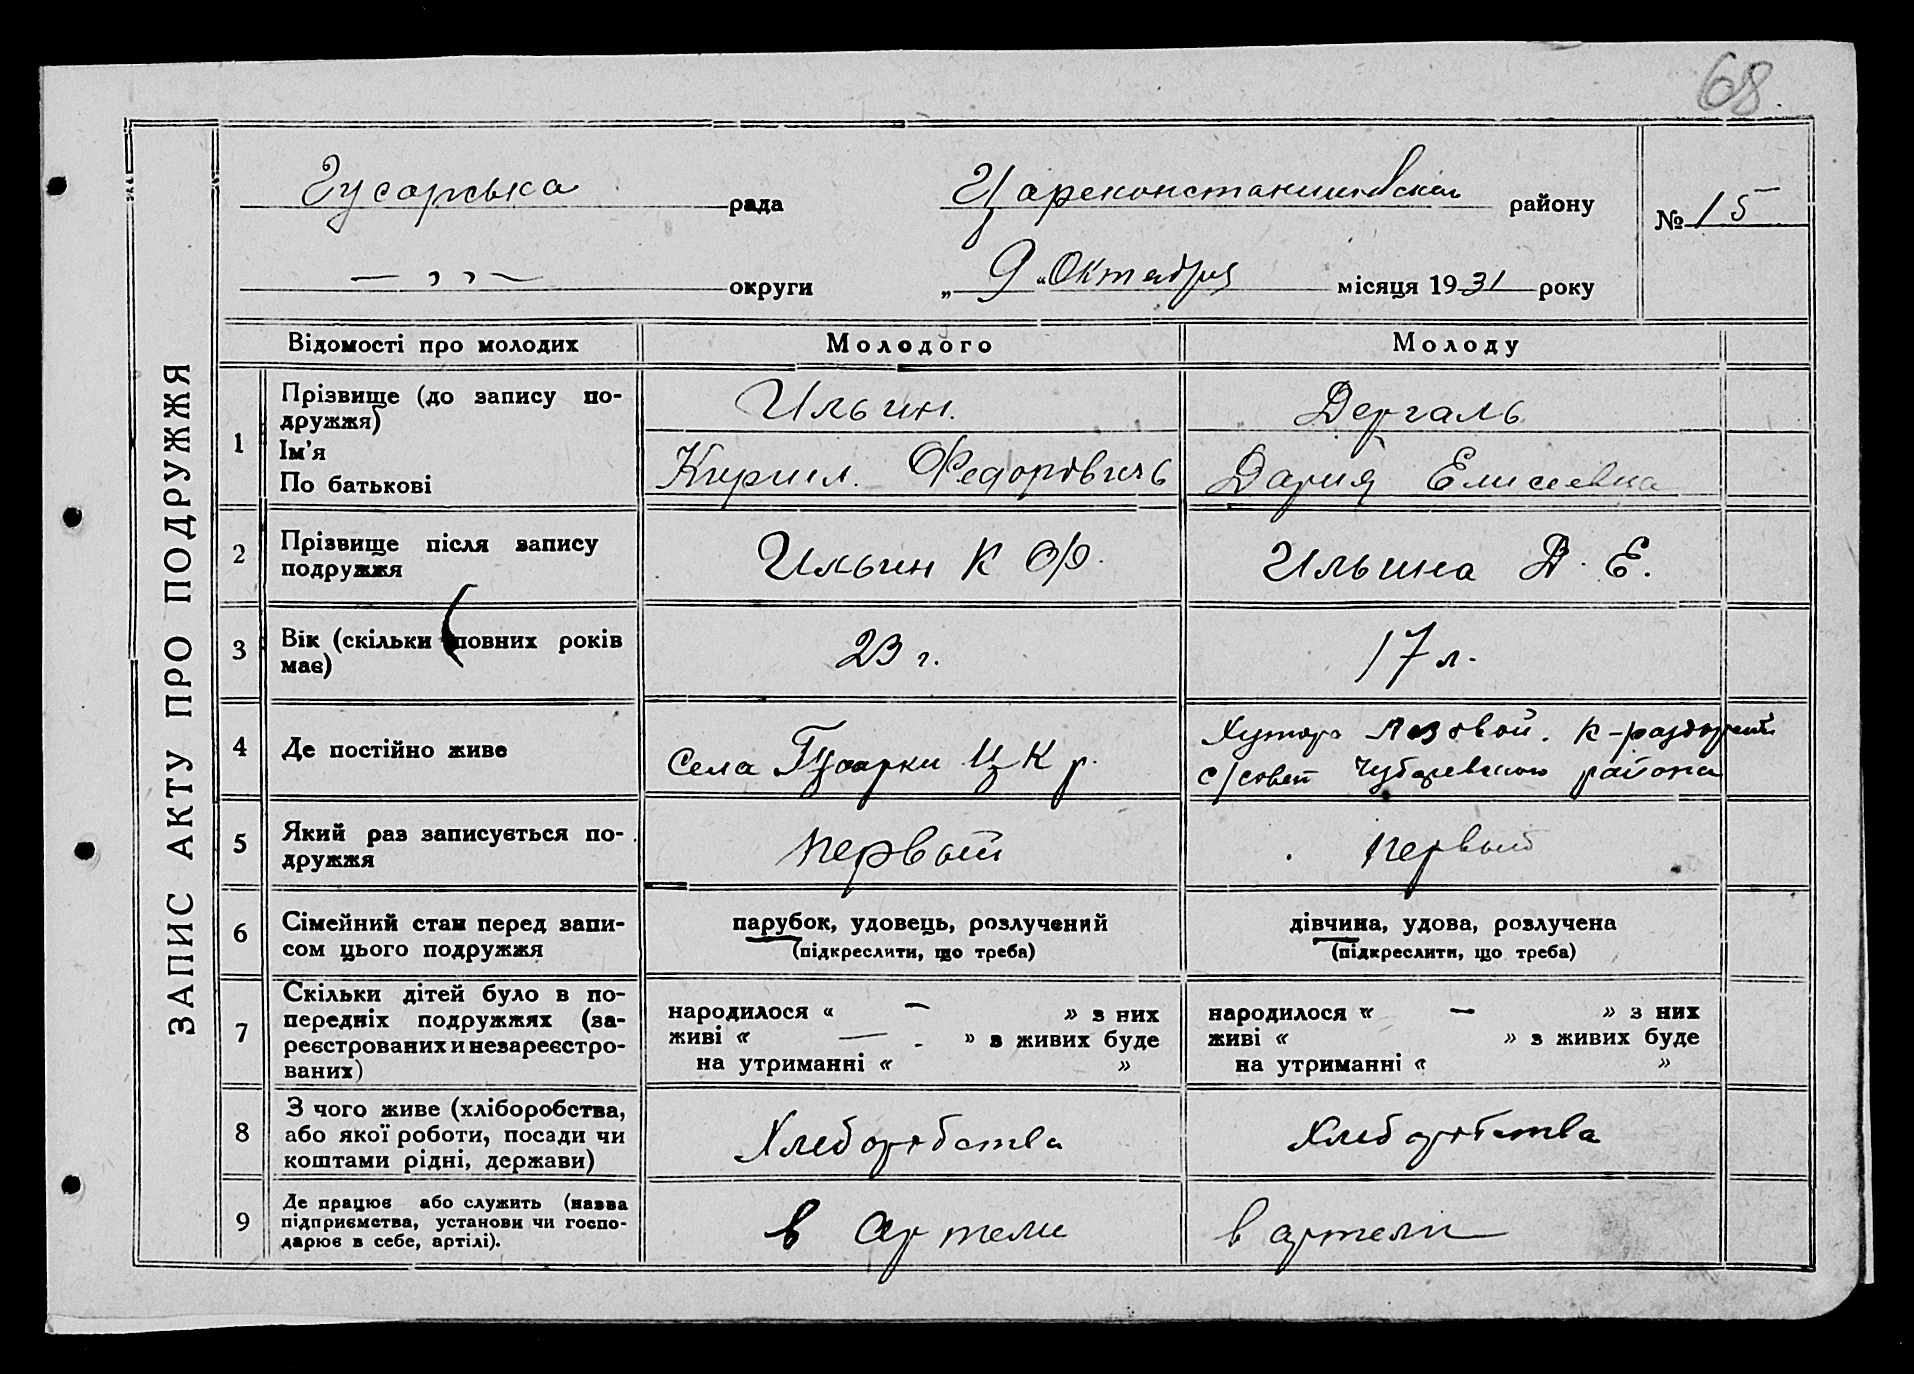 68.
ЗАПИС АКТУ ПРО ПОДРУЖЖЯ
Гусарська рада Цареконстантиновской району № 15
— „ — округи „ 9 “ Октября місяця 1931 року
Відомості про молодих Молодого Молоду
1 Прізвище (до запису по-
дружжя) Ильин. Дергаль
Ім'я
По батькові Кирил. Федорович Дария Елисеевна
2 Прізвище після запису
подружжя Ильин К Ф. Ильина Д. Е.
3 Вік (скільки повних років
має) 23 г. 17 л.
4 Де постійно живе Села Гусарки Ц К р. Хутор Лозовой. К-раздорский
с/совет Чубаревского района
5 Який раз записується по-
дружжя первый первый
6 Сімейний стан перед запи-
сом цього подружжя парубок, удовець, розлучений дівчина, удова, розлучена
(підкреслити, що треба) (підкреслити, що треба)
7 Скільки дітей було в по-
передніх подружжях (за-
реєстрованих и незареєстро-
ваних) народилося « — » з них народилося « — » з них
живі « — » з живих буде живі « » з живих буде
на утриманні « » на утриманні « »
8 З чого живе (хліборобства,
або якої роботи, посади чи
коштами рідні, держави) Хлеборобства Хлеборобства
9 Де працює або служить (назва
підприємства, установи чи госпо-
дарює в себе, артілі). в артели в артели